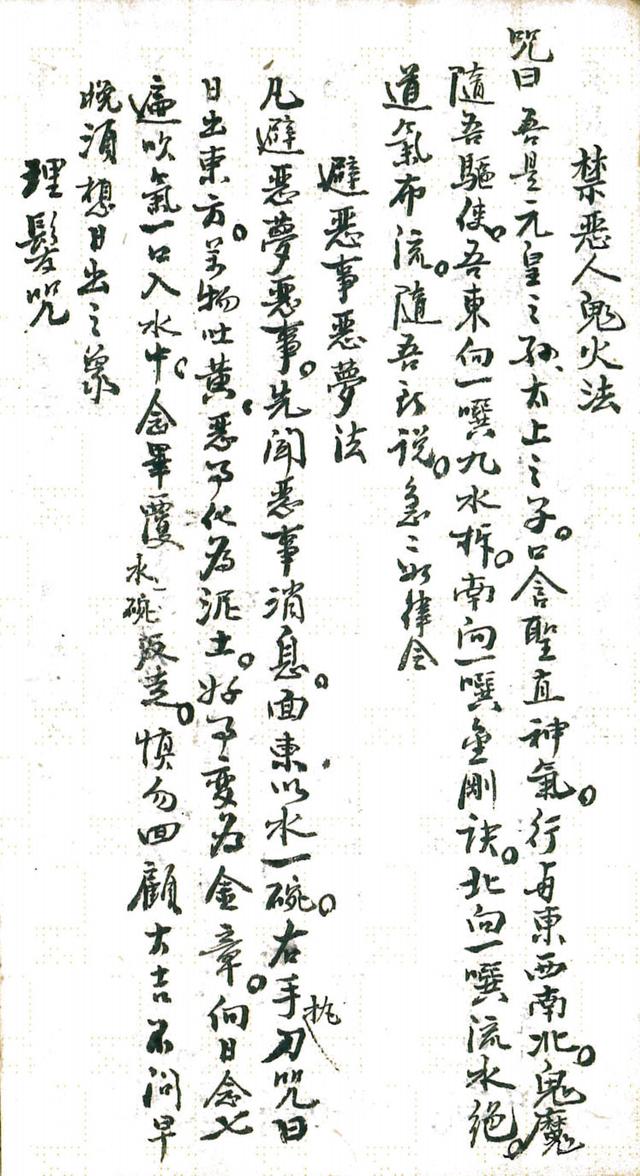 禁恶人鬼火法
咒曰吾是元皇之孙太上之子。口含聖直神氣。行毒東西南北。鬼魔
隨吾驅使。吾東向一噀九水柝。南向一噀金剛訣。北向一噀流水绝。
道氣布流。隨吾所说。急〻如律令
避恶事恶夢法
凡避恶夢恶事。先聞恶事消息。面東以水一碗。右手执刀咒曰
日出東方。万物吐黄。恶事化為泥土。好事变为金章。向日念七
遍吹氣一口入水中。念畢覆水碗返走。慎勿回顧大吉不問早
晚須想日出之象
理髮咒